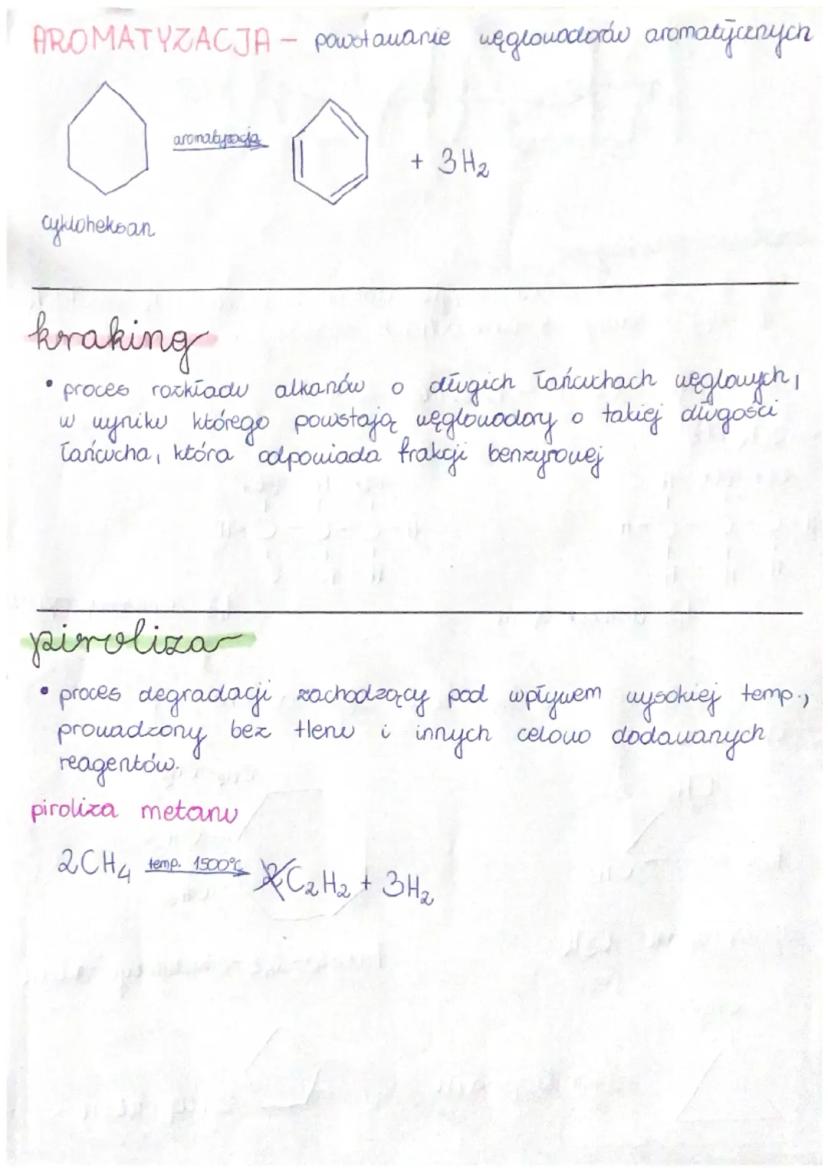 AROMATYZACJA – powstawanie węglowodorów aromatycznych
aromatyzacja
+ 3H₂
cykloheksan
kraking
• proces rozkładu alkanów o długich łańcuchach węglowych,
w wyniku którego powstają węglowodory o takiej długości
łańcucha, która odpowiada frakcji benzynowej
piroliza
• proces degradacji zachodzący pod wpływem wysokiej temp.,
prowadzony bez tlenu i innych celowo dodawanych
reagentów.
piroliza metanu
2CH₄ temp. 1500°C → C₂H₂ + 3H₂